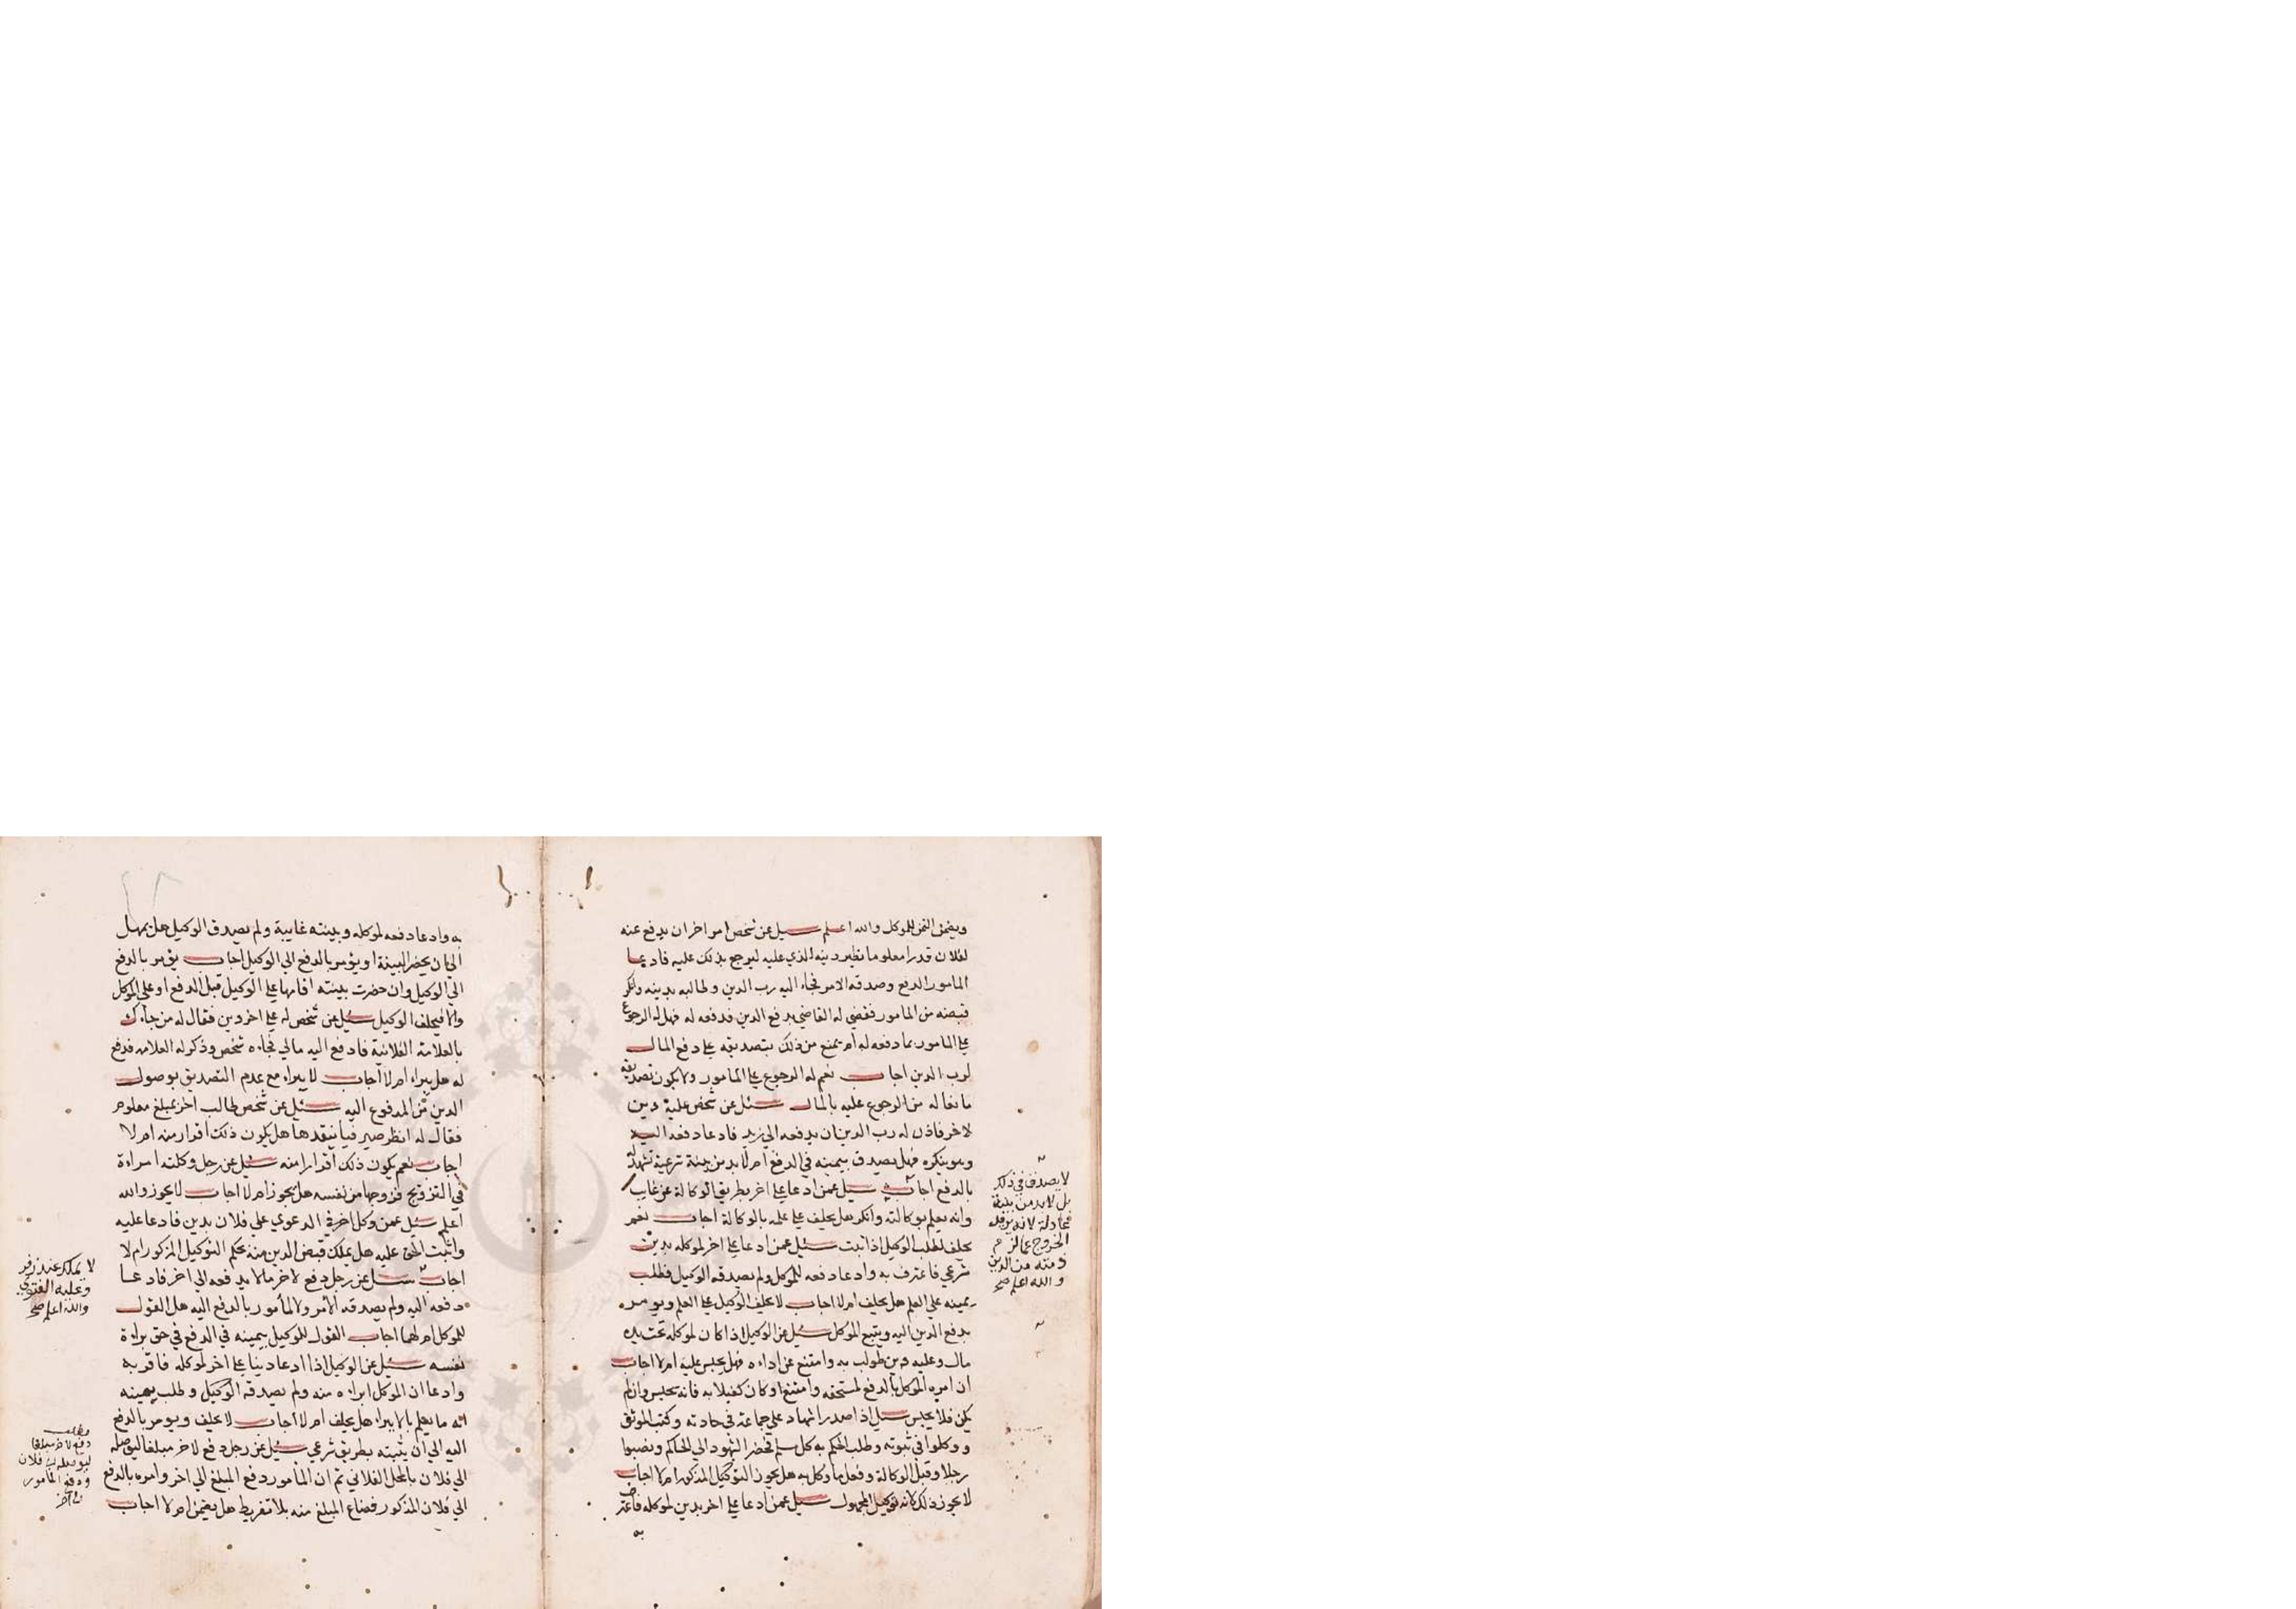 ويضمن الثمن للموكل والله اعلم سيل عن شخص امر اخر ان يدفع عنه
لفلان قدرا معلوما نظير دينه الذي عليه ليرجع بذلك عليه فادعا
المامور الدفع وصدقه الامر فجاء اليه رب الدين وطالبه بدينه وانكر
قبضه من المامور فقضي له القاضي بدفع الدين فدفعه له فهل له الرجوع
علي المامور بما دفعه له ام يمنع من ذلك بتصديقه علي دفع المال
لرب الدين اجاب نعم له الرجوع علي المامور ولا يكون تصديقه
مانعا له من الرجوع عليه بالمال سئل عن شخص عليه دين
لاخر فاذن له رب الدين ان يدفعه الي زيد فادعا دفعه اليه
وهو ينكره فهل يصدق بيمينه في الدفع ام لا بد من بينة شرعية تشهد له
بالدفع اجاب سيل عمن ادعا علي اخر بطريق الوكالة عن غايب
وانه يعلم بوكالته وانكر هل يحلف علي علمه بالوكالة اجاب نعم
يحلف لطلب الوكيل اذا ثبت سئل عمن ادعا علي اخر لموكله بدين
شرعي فاعترف به وادعا دفعه للموكل ولم يصدقه الوكيل فطلب
يمينه علي العلم هل يحلف ام لا اجاب لا يحلف الوكيل علي العلم ويومر
بدفع الدين اليه ويتبع الموكل سئل عن الوكيل اذا كان لموكله تحت يده
مال وعليه دين طولب به وامتنع عن اداءه فهل يحبس عليه ام لا اجاب
ان امره الموكل بالدفع لمستحقه وامتنع او كان كفيلا به فانه يحبس وان لم
يكن فلا يحبس سئل اذا صدر اشهاد علي جماعة في حادثة وكتب الموثق
ووكلوا في ثبوته وطلب الحكم به كل مسلم فحضر الشهود الي الحاكم ونصبوا
رجلا وقبل الوكالة وفعل ما وكل به هل يجوز التوكيل المذكور ام لا اجاب
لا يجوز ذلك لانه توكيل المجهول سئل عمن ادعا علي اخر بدين لموكله فاعترف
به
لا يصدق في ذلك
بل لا بد من بينة
عادلة لانه يريد
الخروج عما لزم
ذمته من الدين
والله اعلم صح
به وادعا دفعه لموكله وبينته غايبة ولم يصدق الوكيل هل يمهل
الي ان يحضر البينة او يؤمر بالدفع الي الوكيل اجاب يؤمر بالدفع
الي الوكيل وان حضرت بينته اقامها علي الوكيل قبل الدفع او علي الموكل
والا فيحلف الوكيل سئل عن شخص له علي اخر دين فقال له من جاءك
بالعلامة الفلانية فادفع اليه مالي فجاءه شخص وذكر له العلامه فدفع
له هل يبراء ام لا اجاب لا يبراء مع عدم التصديق بوصول
الدين من المدفوع اليه سئل عن شخص طالب اخر بمبلغ معلوم
فقال له انظر صيرفيا ينقدها هل يكون ذلك اقرار منه ام لا
اجاب نعم يكون ذلك اقرارا منه سئل عن رجل وكلته امراءة
في التزويج فزوجها من نفسه هل يجوز ام لا اجاب لا يجوز والله
اعلم سئل عمن وكل اخر في الدعوي علي فلان بدين فادعا عليه
واثبت الحق عليه هل يملك قبض الدين منه بحكم التوكيل المذكور ام لا
اجاب سئل عن رجل دفع لاخر مالا يدفعه الي اخر فادعا
دفعه اليه ولم يصدقه الامر ولا المأمور بالدفع اليه هل القول
للموكل ام لهما اجاب القول للوكيل بيمينه في الدفع في حق براءة
نفسه سئل عن الوكيل اذا ادعا دينا علي اخر لموكله فاقر به
وادعا ان الموكل ابراءه منه ولم يصدقه الوكيل وطلب يمينه
انه ما يعلم بالابراء هل يحلف ام لا اجاب لا يحلف ويومر بالدفع
اليه الي ان يثبته بطريق شرعي سئل عن رجل دفع لاخر مبلغا ليوصله
الي فلان بالمحل الفلاني ثم ان المأمور دفع المبلغ الي اخر وامره بالدفع
الي فلان المذكور فضاع المبلغ منه بلا تفريط هل يضمن ام لا اجاب
لا يملك عند زفر
وعليه الفتوي
والله اعلم صح
مطلب
دفع لاخر مبلغا
ليوصله الي فلان
ودفع المأمور